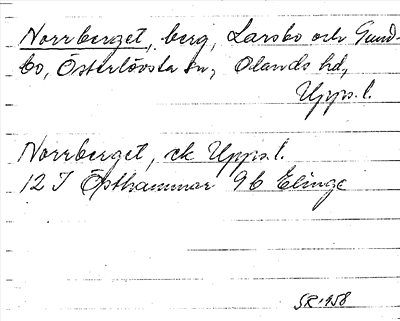 Norrberget, berg, Larsbo och Gund-
bo, Österlövsta sn, Olands hd,
Upps.l.
Norrberget, ek Upps.l.
12 I Östhammar 9b Elinge
SR 1958